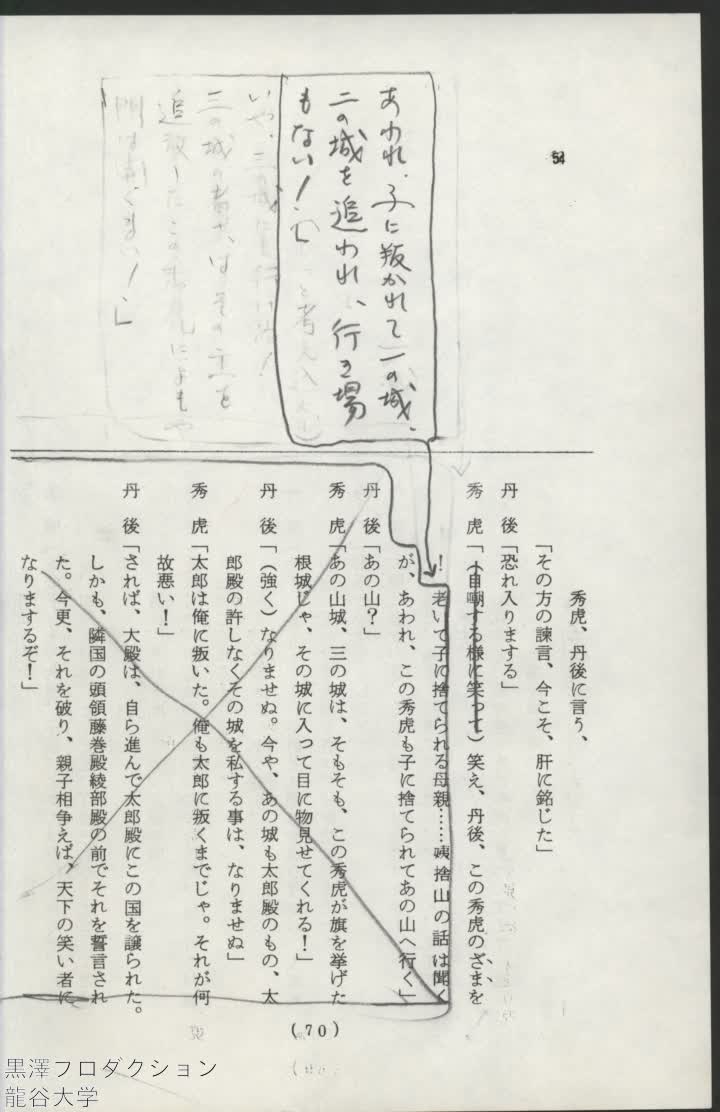 54
あわれ、子に叛かれて一の城、
二の城を追われ、行く場
もない！」
三の城の
追放したこの
秀虎、丹後に言う、
「その方の諫言、今こそ、肝に銘じた」
丹後「恐れ入りまする」
秀虎「（自嘲する様に笑って）笑え、丹後、この秀虎のざまを
！老いて子に捨てられる母親……姨捨山の話は聞く
が、あわれ、この秀虎も子に捨てられてあの山へ行く」
丹後「あの山？」
秀虎「あの山城、三の城は、そもそも、この秀虎が旗を挙げた
根城じゃ、その城に入って目に物見せてくれる！」
丹後「（強く）なりませぬ。今や、あの城も太郎殿のもの、太
郎殿の許しなくその城を私する事は、なりませぬ」
秀虎「太郎は俺に叛いた。俺も太郎に叛くまでじゃ。それが何
故悪い！」
丹後「されば、大殿は、自ら進んで太郎殿にこの国を譲られた。
しかも、隣国の頭領藤巻殿綾部殿の前でそれを誓言され
た。今更、それを破り、親子相争えば、天下の笑い者に
なりまするぞ！」
(70)
黒澤フロダクション
龍谷大学